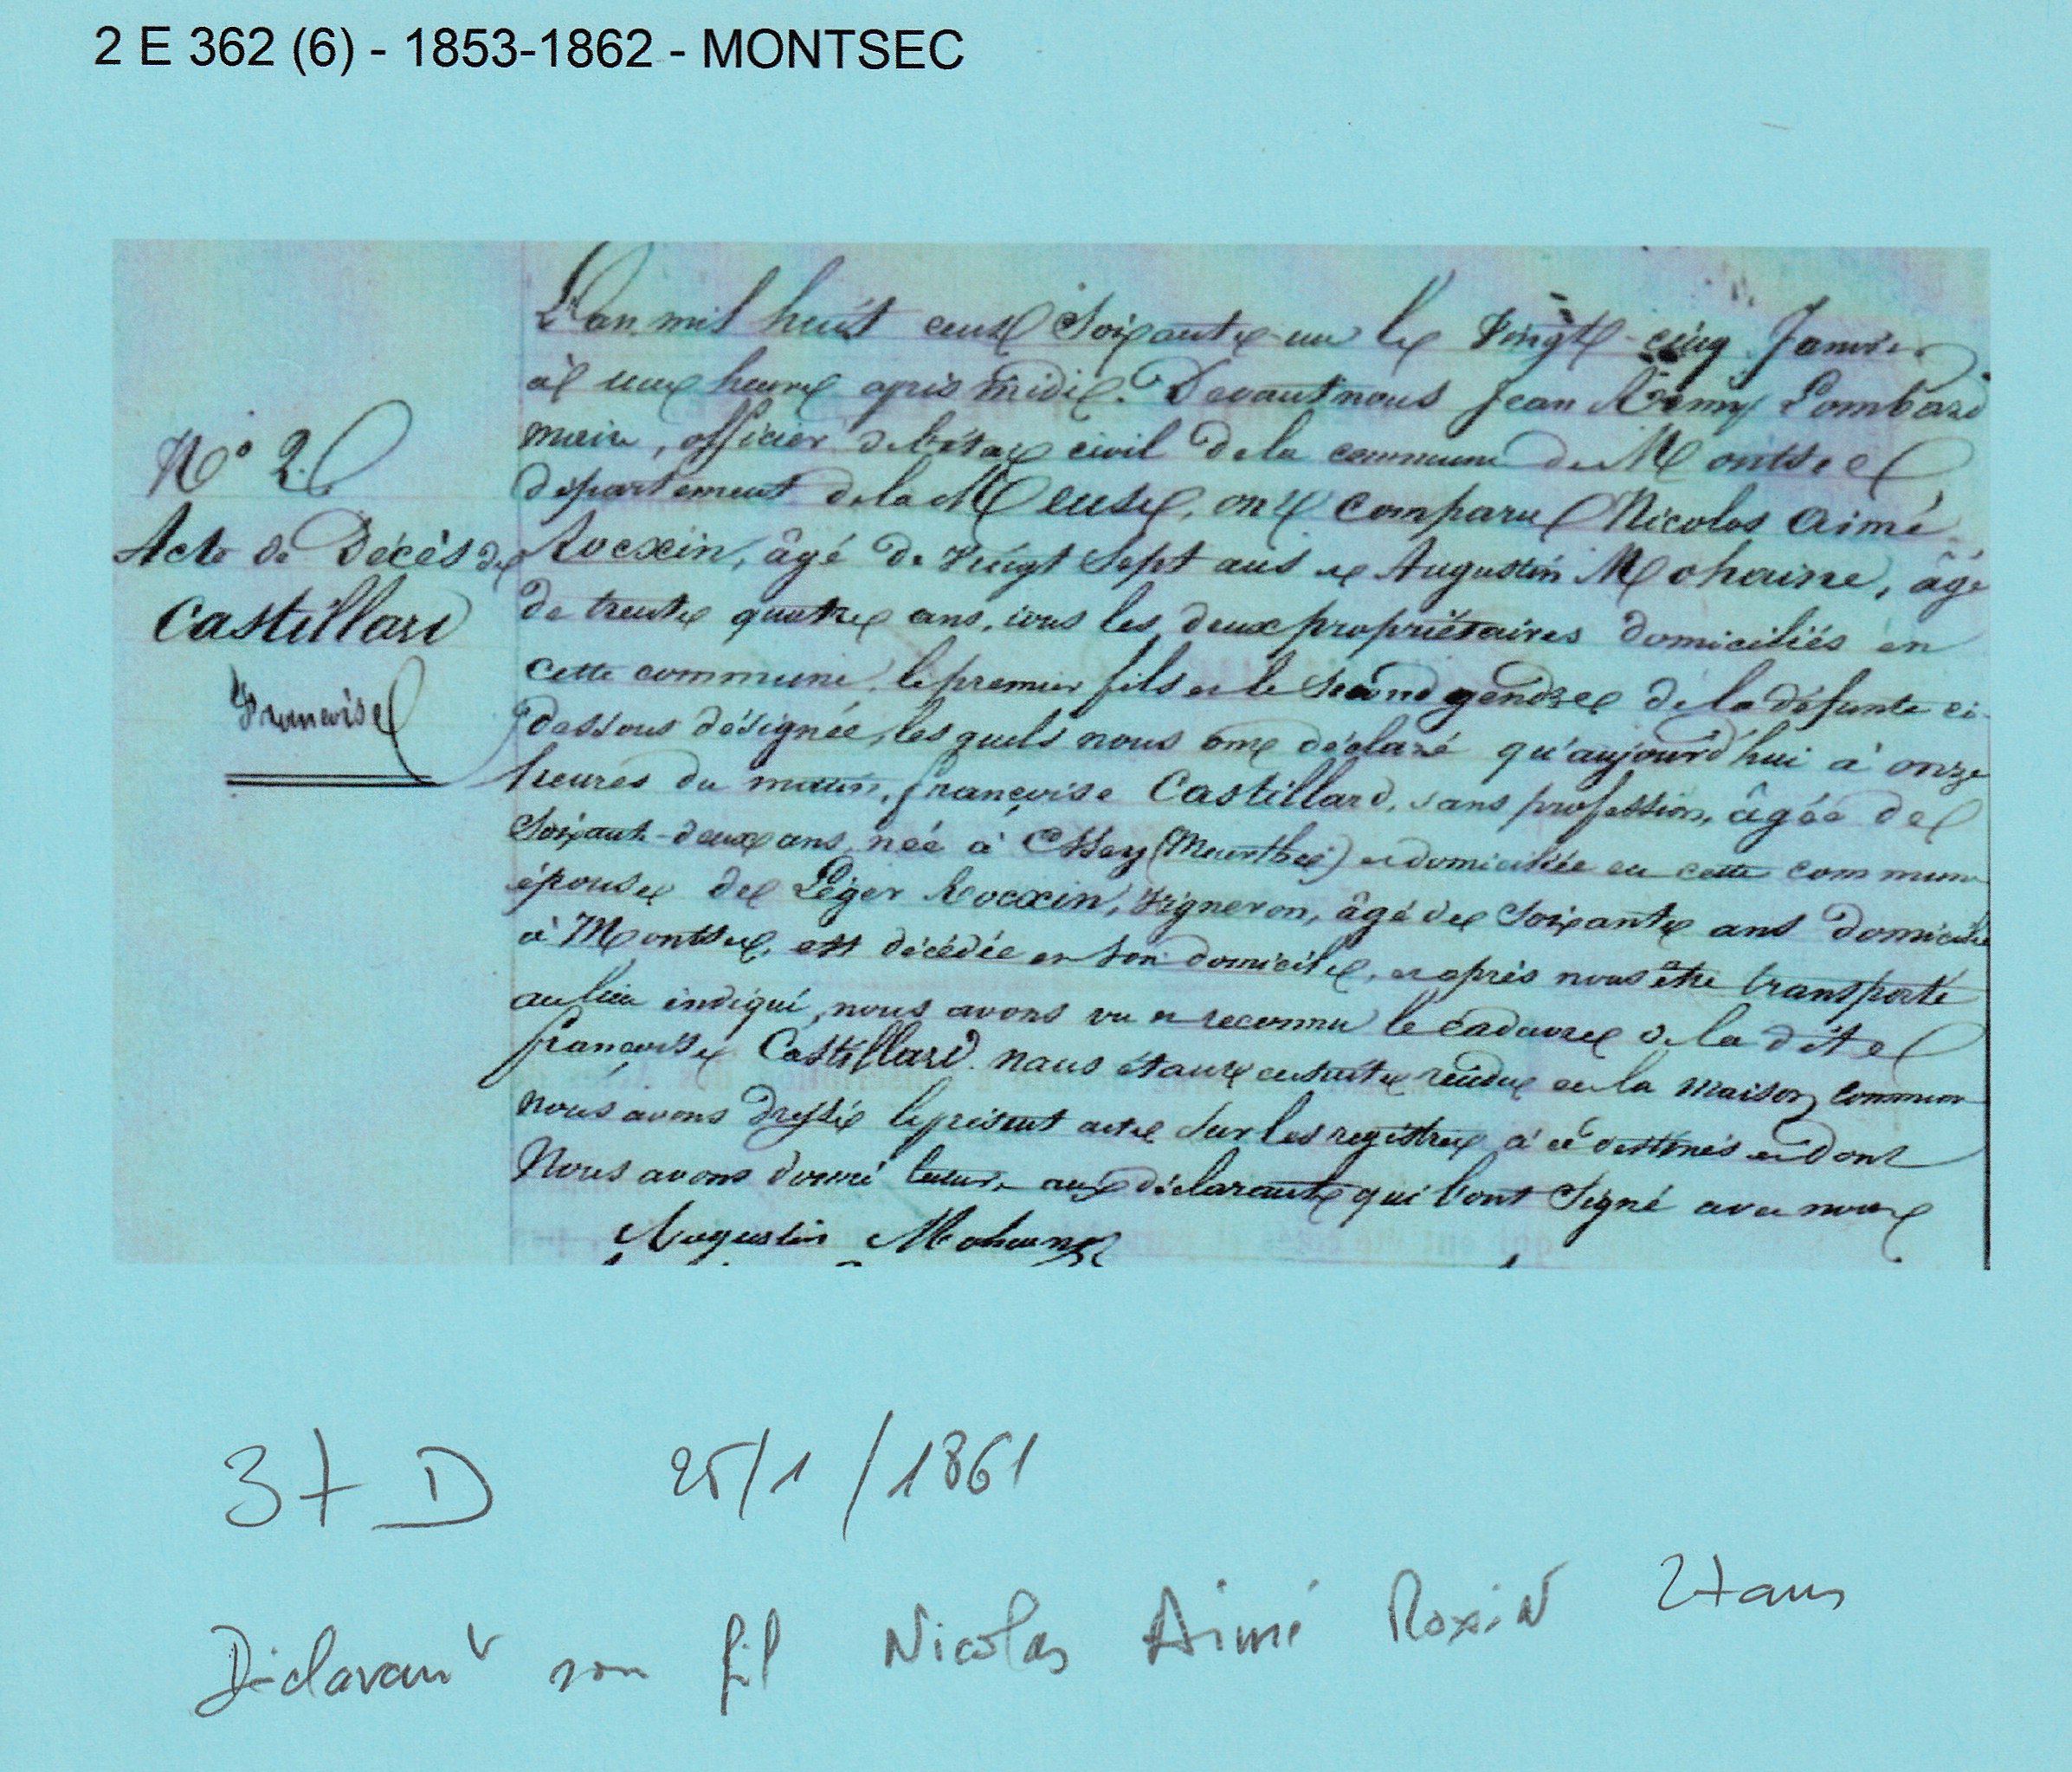 2 E 362 (6) - 1853-1862 - MONTSEC
L'an mil huit cent Soixante-un le Vingt-cinq Janvier
à une heure après midi. Devant nous Jean Rémy Lombard
maire, officier de l'état civil de la commune de Montsec
département de la Meuse, ont comparu Nicolas Aimé
Rocxin, âgé de Vingt Sept ans et Augustin Mohaine, âgé
de trente quatre ans, tous les deux propriétaires domiciliés en
cette commune, le premier fils et le second gendre de la défunte ci-
dessous désignée, lesquels nous ont déclaré qu'aujourd'hui à onze
heures du matin, françoise Castillard, sans profession, âgée de
Soixante-deux ans, née à Essey (Meurthe) et domiciliée en cette commune
épouse de Léger Rocxin, Vigneron, âgé de Soixante ans domicilié
à Montsec, est décédée en son domicile, et après nous être transporté
au lieu indiqué, nous avons vu et reconnu le cadavre de la dite
françoise Castillard. nous étant ensuite rendu en la maison commune
nous avons dressé le présent acte sur les registres à ce destinés et dont
Nous avons donné lecture aux déclarants qui l'ont Signé avec nous
Augustin Mohaine
N° 2
Acte de Décès de
Castillard
Françoise
37 D 25/1/1861
Déclarant son fil Nicolas Aimé Roxin 27 ans